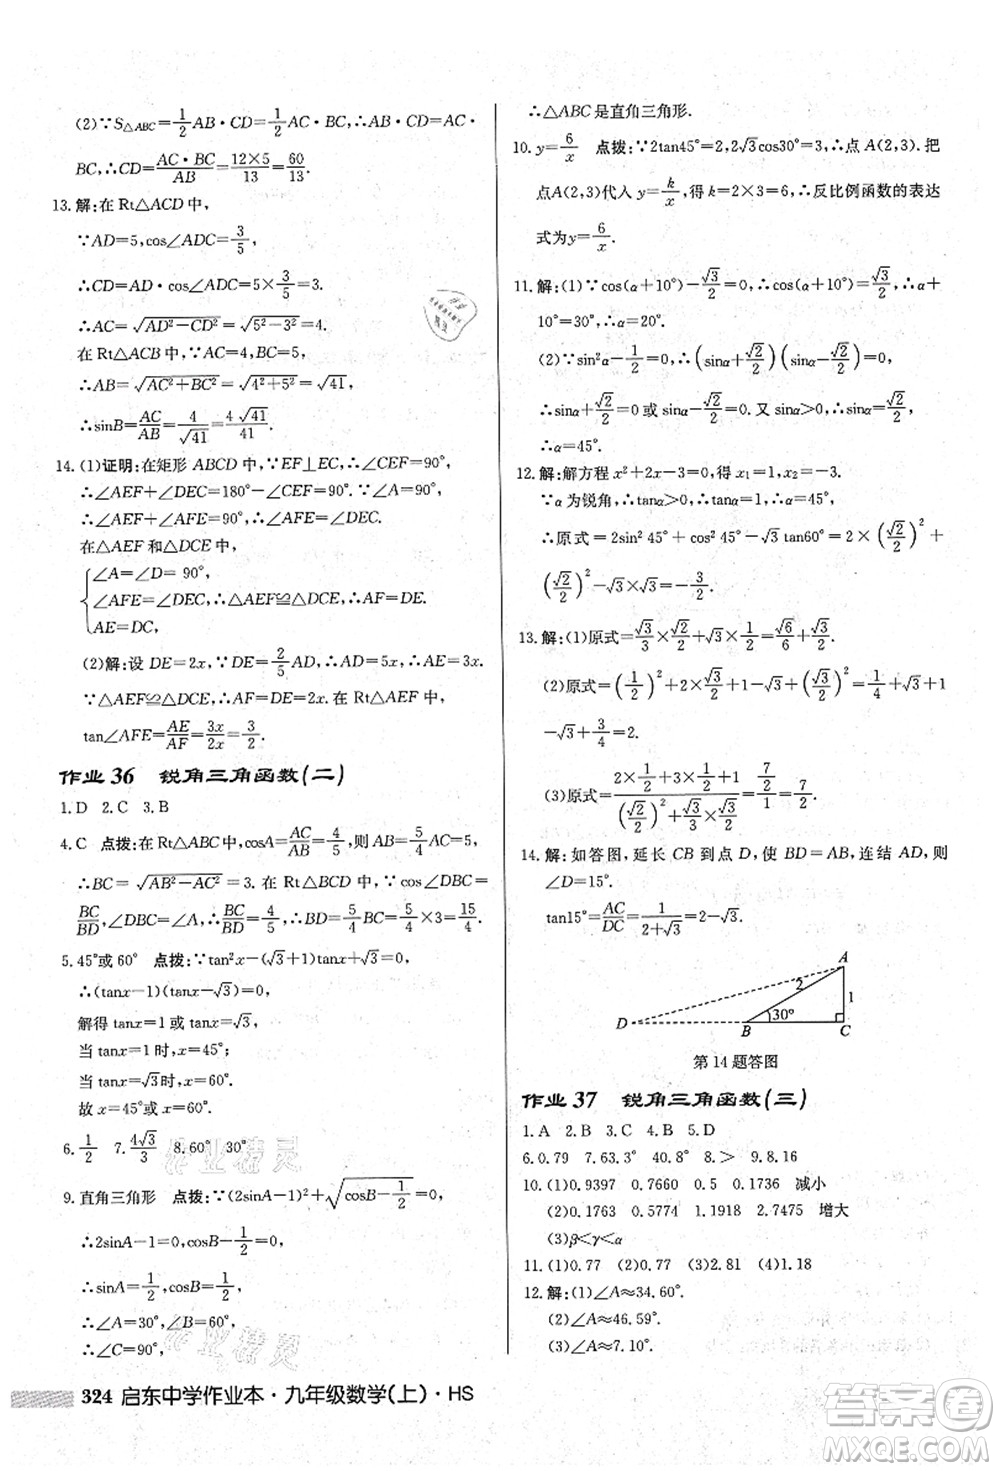 (2)∵S△ABC=1/2AB·CD=1/2AB·CD=AC·
BC,∴CD=AC·BC/AB=12×5/13=60/13.
13.解:在 Rt△ACD 中,
∵AD=5,cos∠ADC=3/5,
∴CD=AD·cos∠ADC=5×3/5=3.
∴AC=√(AD²-CD²)=√(5²-3²)=4.
在 Rt△ACB 中,∵AC=4,BC=5,
∴AB=√(AC²+BC²)=√(4²+5²)=√41,
∴sinB=AC/AB=4/√41=4√41/41.
14.(1)证明:在矩形 ABCD 中,∵EF⊥EC,∴∠CEF=90°,
∴∠AEF+∠DEC=180°-∠CEF=90°.
∵∠AEF+∠AFE=90°,∴∠AFE=∠DEC.
在△AEF 和△DCE 中,
{∠A=∠D=90°,
∠AFE=∠DEC,∴△AEF≌△DCE,∴AF=DE.
AE=DC,
(2)解:设 DE=2x,∵DE=2/5AD,∴AD=5x,∴AE=3x.
∵△AEF≌△DCE,∴AF=DE=2x.在 Rt△AEF 中,
tan∠AFE=AE/AF=3x/2x=3/2.
作业 36 锐角三角函数(二)
1.D 2.C 3.B
4.C 点拨:在 Rt△ABC 中,cosA=AC/AB=4/5,则 AB=5/4AC=5.
∴BC=√(AB²-AC²)=3.在 Rt△DBC 中,∵cos∠DBC=
BC/BD,∠DBC=∠A,∴BC/BD=4/5,∴BD=5/4BC=5/4×3=15/4.
5.45°或 60° 点拨:∵tan²x-(√3+1)tanx+√3=0,
∴(tanx-1)(tanx-√3)=0,
解得 tanx=1 或 tanx=√3,
当 tanx=1 时,x=45°;
当 tanx=√3 时,x=60°.
故 x=45°或 x=60°.
6.1/2 7.4√3/3 8.60° 30°
9.直角三角形 点拨:∵(2sinA-1)²+√(cosB-1/2)=0,
∴2sinA-1=0,cosB-1/2=0,
∴sinA=1/2,cosB=1/2,
∴∠A=30°,∠B=60°,
∴∠C=90°,
∴△ABC 是直角三角形.
10.y=6/x 点拨:∵2tan45°=2,2√3cos30°=3,∴点 A(2,3).把
点A(2,3)代入 y=k/x,得 k=2×3=6,∴反比例函数的表达
式为y=6/x.
11.解:(1)∵cos(α+10°)-√3/2=0,∴cos(α+10°)=√3/2,∴α+
10°=30°,∴α=20°.
(2)∵sin²α-1/2=0,∴(sinα+√2/2)(sinα-√2/2)=0,
∴sinα+√2/2=0 或 sinα-√2/2=0.又 sinα>0,∴sinα=√2/2,
∴α=45°.
12.解:解方程 x²+2x-3=0,得 x₁=1,x₂=-3.
∵α为锐角,∴tanα>0,∴tanα=1,∴α=45°,
∴原式=2sin²45°+cos²45°-√3tan60°=2×(√2/2)²+
(√2/2)²-√3×√3=-3/2.
13.解:(1)原式=√3/2×√2/2+√3×1/2=√6/6+√3/2.
(2)原式=(1/2)²+2×√3/2+√3/2×√3/2=1/4+√3+1
-√3+3/4=2.
(3)原式=(2×1/2+1/2+2)/((√2/2)²+√3/2×√3/3)=(7/2)/1=7/2.
14.解:如答图,延长 CB 到点 D,使 BD=AB,连结 AD,则
∠D=15°.
tan15°=AC/DC=1/(2+√3)=2-√3.
A
2
1
30°
D
B
C
第14题答图
作业 37 锐角三角函数(三)
1.A 2.B 3.C 4.B 5.D
6.0.79 7.63.3° 40.8° 8.> 9.8.16
10.(1)0.9397 0.7660 0.5 0.1736 减小
(2)0.1763 0.5774 1.1918 2.7475 增大
(3)β<γ<α
11.(1)0.77 (2)0.77 (3)2.91 (4)1.18
12.解:(1)∠A≈34.60°.
(2)∠A≈46.59°.
(3)∠A≈7.10°.
324 启东中学作业本·九年级数学(上)·HS
答案圈
MXQE.COM